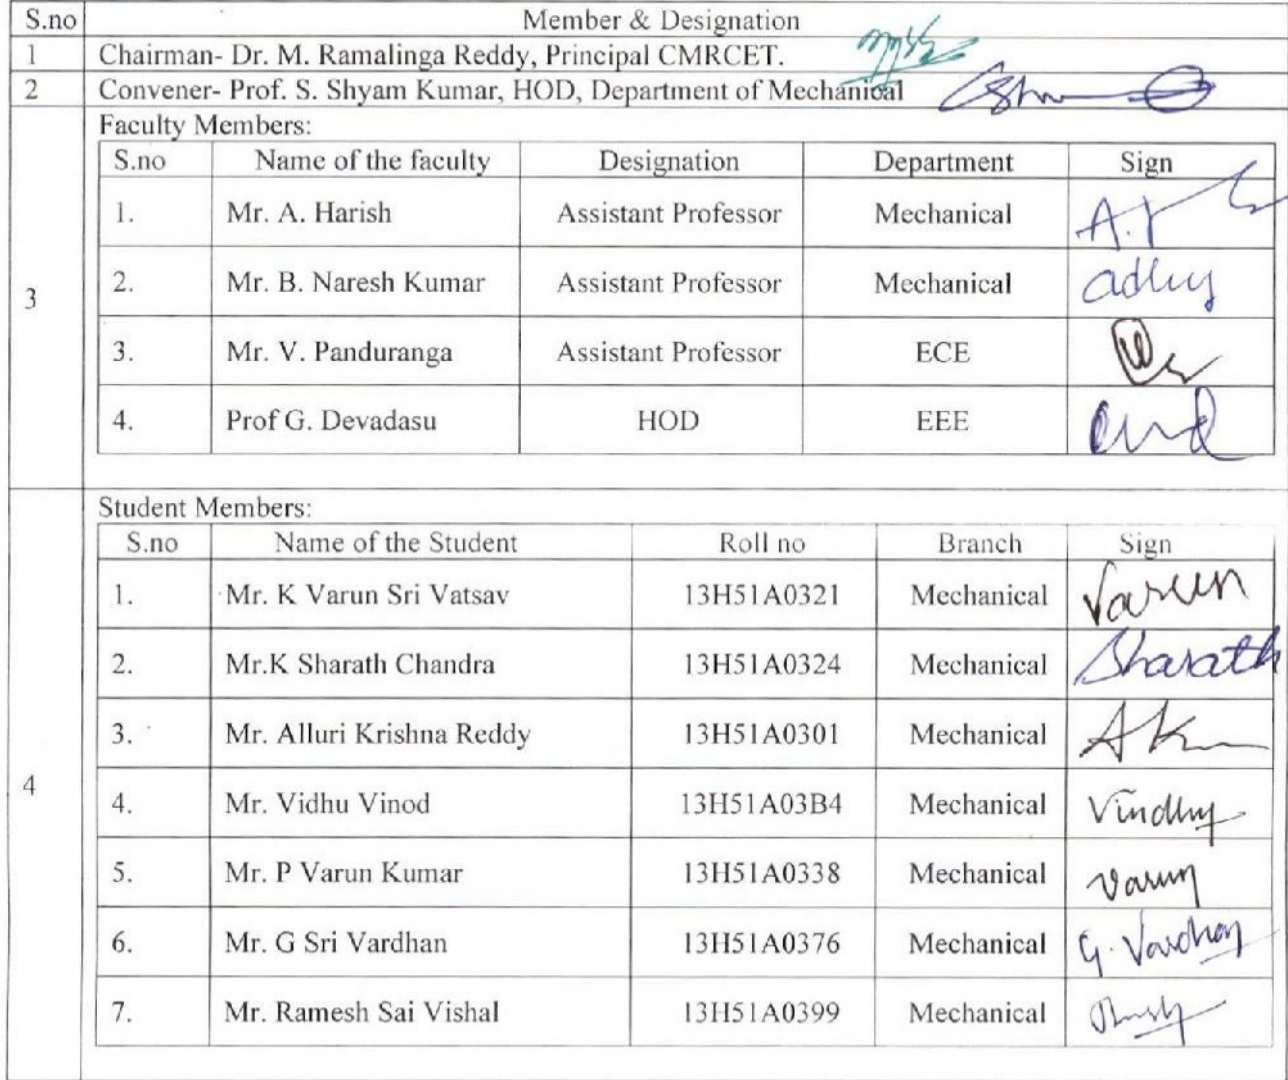 S.no Member & Designation
1 Chairman- Dr. M. Ramalinga Reddy, Principal CMRCET.
2 Convener- Prof. S. Shyam Kumar, HOD, Department of Mechanical
Faculty Members:
S.no Name of the faculty Designation Department Sign
1. Mr. A. Harish Assistant Professor Mechanical
3
2. Mr. B. Naresh Kumar Assistant Professor Mechanical
3. Mr. V. Panduranga Assistant Professor ECE
4. Prof G. Devadasu HOD EEE
Student Members:
S.no Name of the Student Roll no Branch Sign
1. Mr. K Varun Sri Vatsav 13H51A0321 Mechanical Varun
2. Mr.K Sharath Chandra 13H51A0324 Mechanical Sharath
3. Mr. Alluri Krishna Reddy 13H51A0301 Mechanical
4
4. Mr. Vidhu Vinod 13H51A03B4 Mechanical
5. Mr. P Varun Kumar 13H51A0338 Mechanical Varun
6. Mr. G Sri Vardhan 13H51A0376 Mechanical G. Vardhan
7. Mr. Ramesh Sai Vishal 13H51A0399 Mechanical